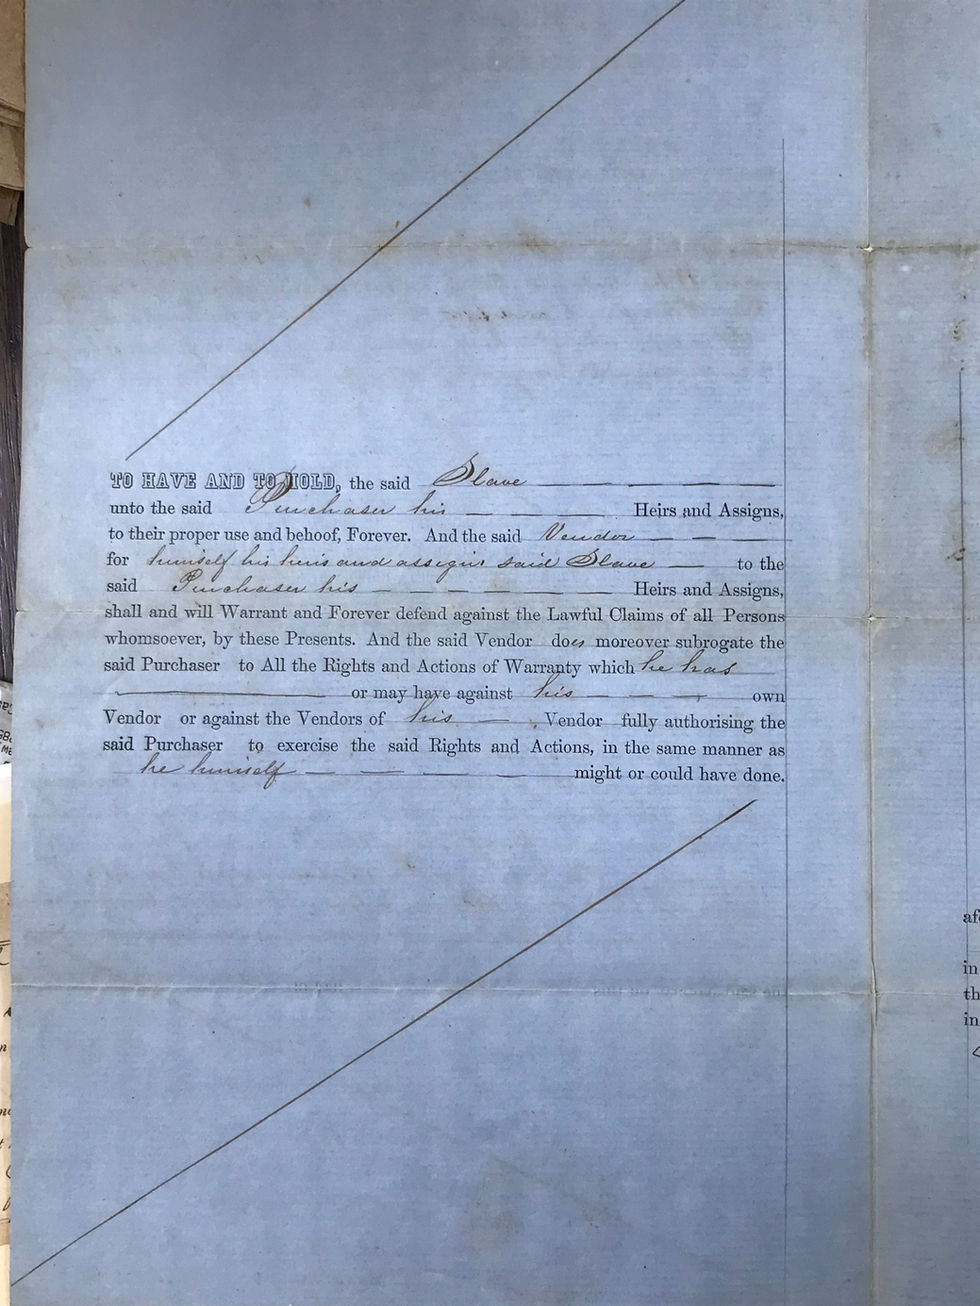 TO HAVE AND TO HOLD, the said Slave
unto the said Purchaser his Heirs and Assigns,
to their proper use and behoof, Forever. And the said Vendor
for himself his heirs and assigns said Slave to the
said Purchaser his Heirs and Assigns,
shall and will Warrant and Forever defend against the Lawful Claims of all Persons
whomsoever, by these Presents. And the said Vendor does moreover subrogate the
said Purchaser to All the Rights and Actions of Warranty which he has
or may have against his own
Vendor or against the Vendors of his Vendor fully authorising the
said Purchaser to exercise the said Rights and Actions, in the same manner as
he himself might or could have done.
in
in